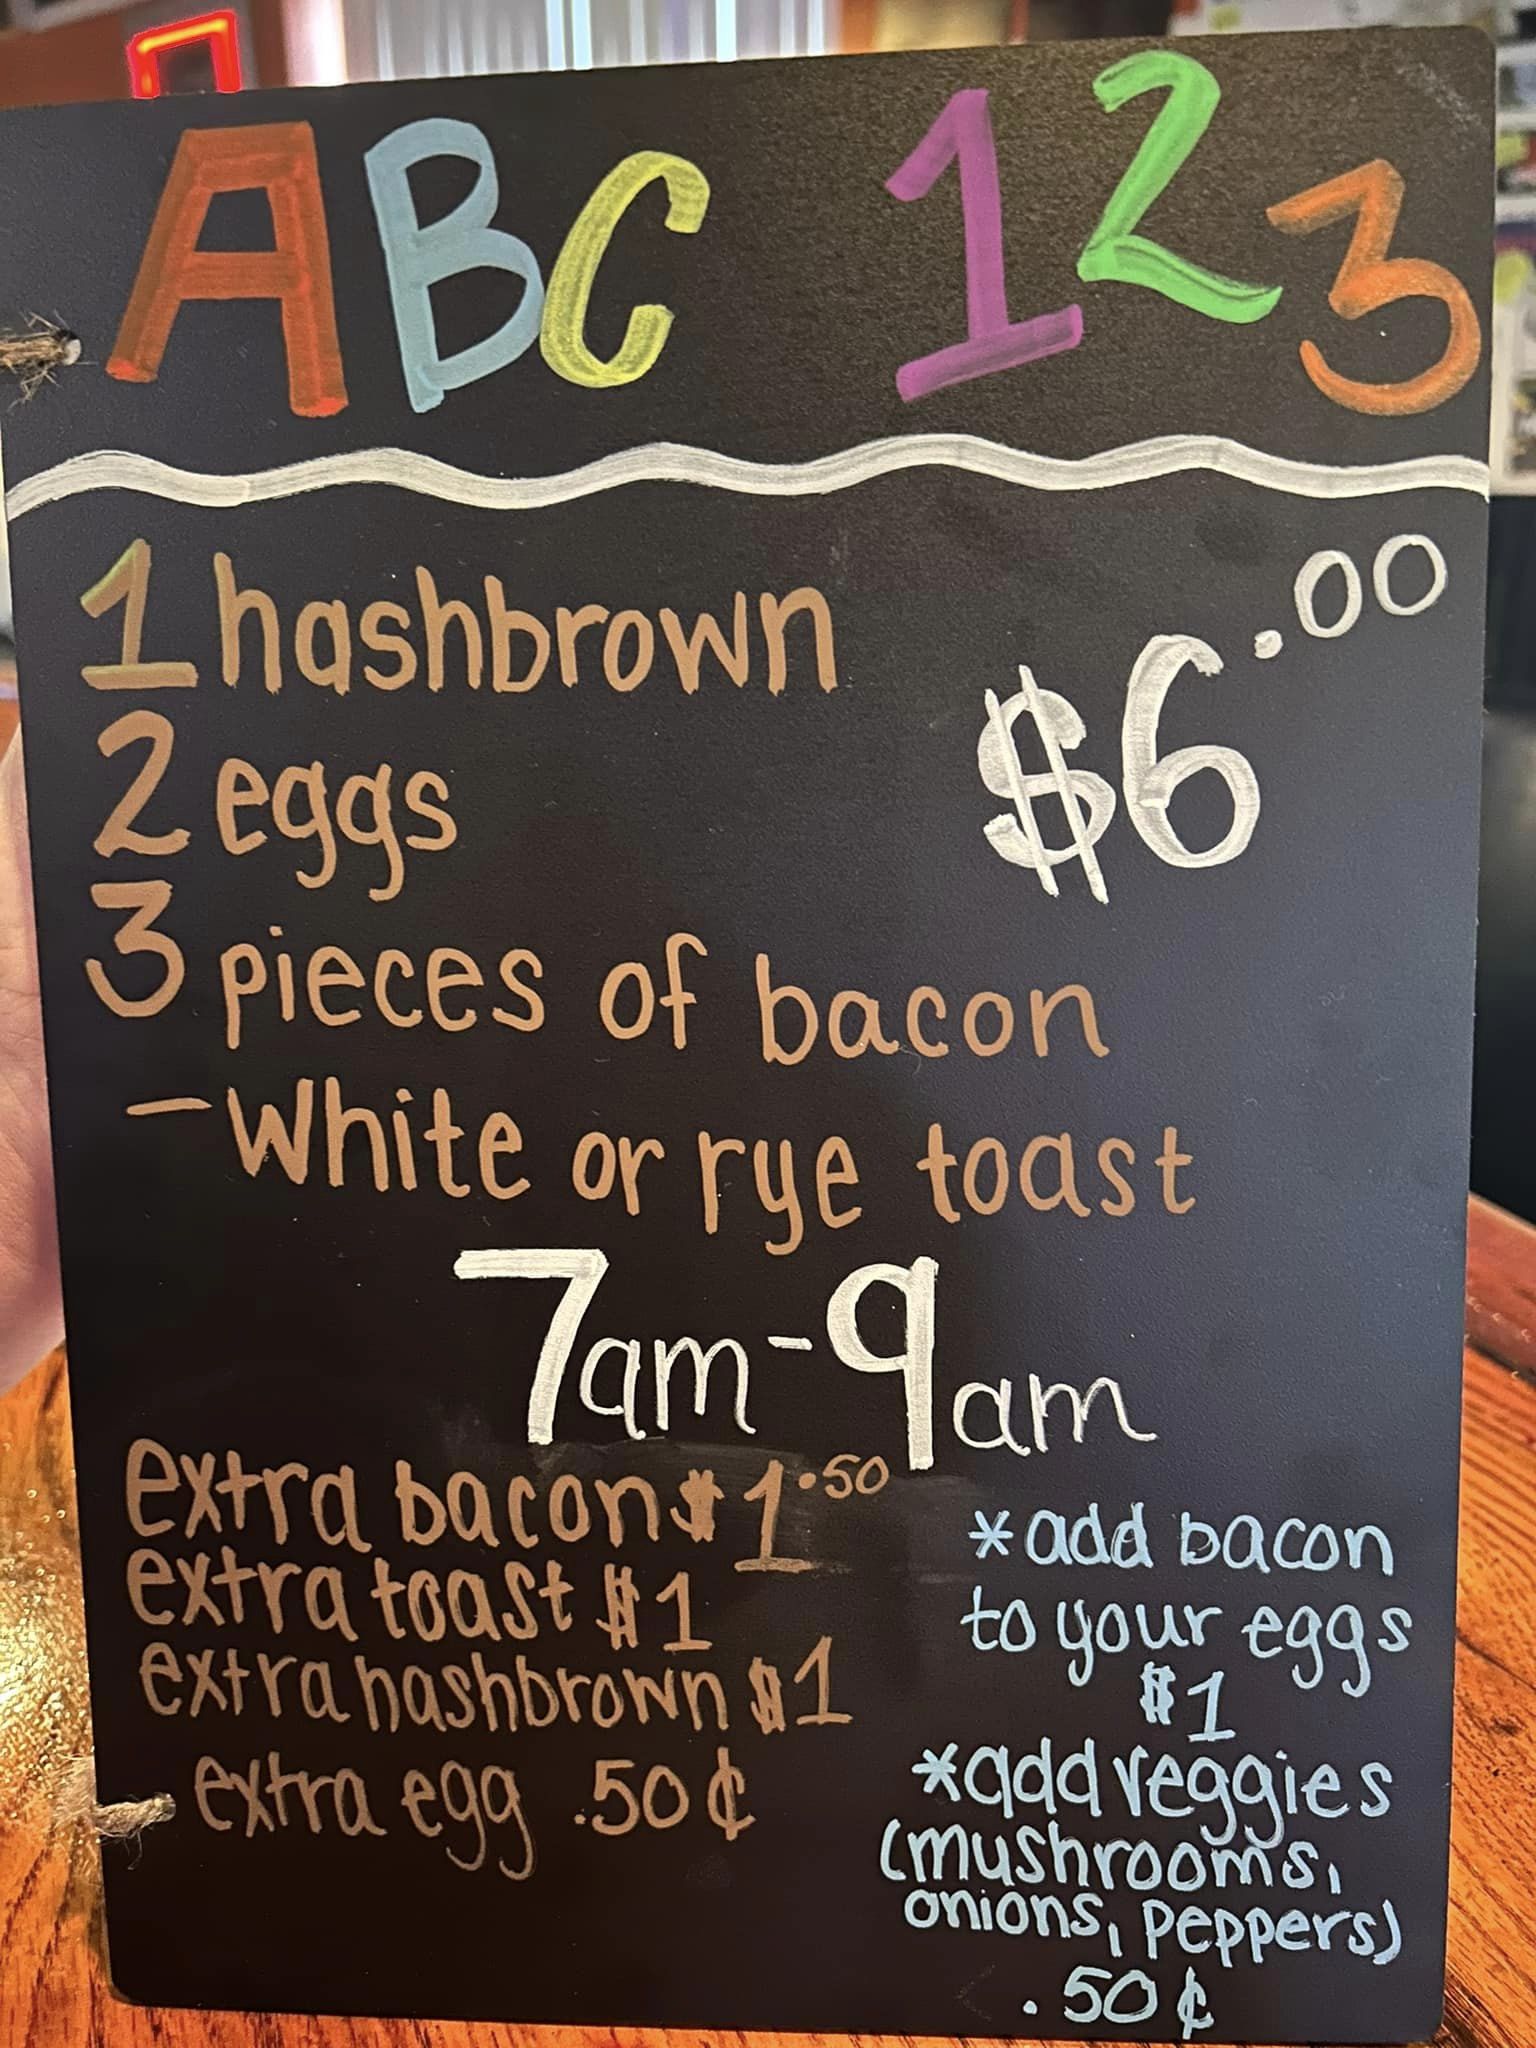 ABC 123
1 hashbrown
$6.00
2 eggs
3 pieces of bacon
- White or rye toast
7am-9am
extra bacon $1.50
extra toast $1
extra hashbrown $1
extra egg .50¢
*add bacon
to your eggs
$1
*add veggies
(mushrooms,
onions, peppers)
.50¢